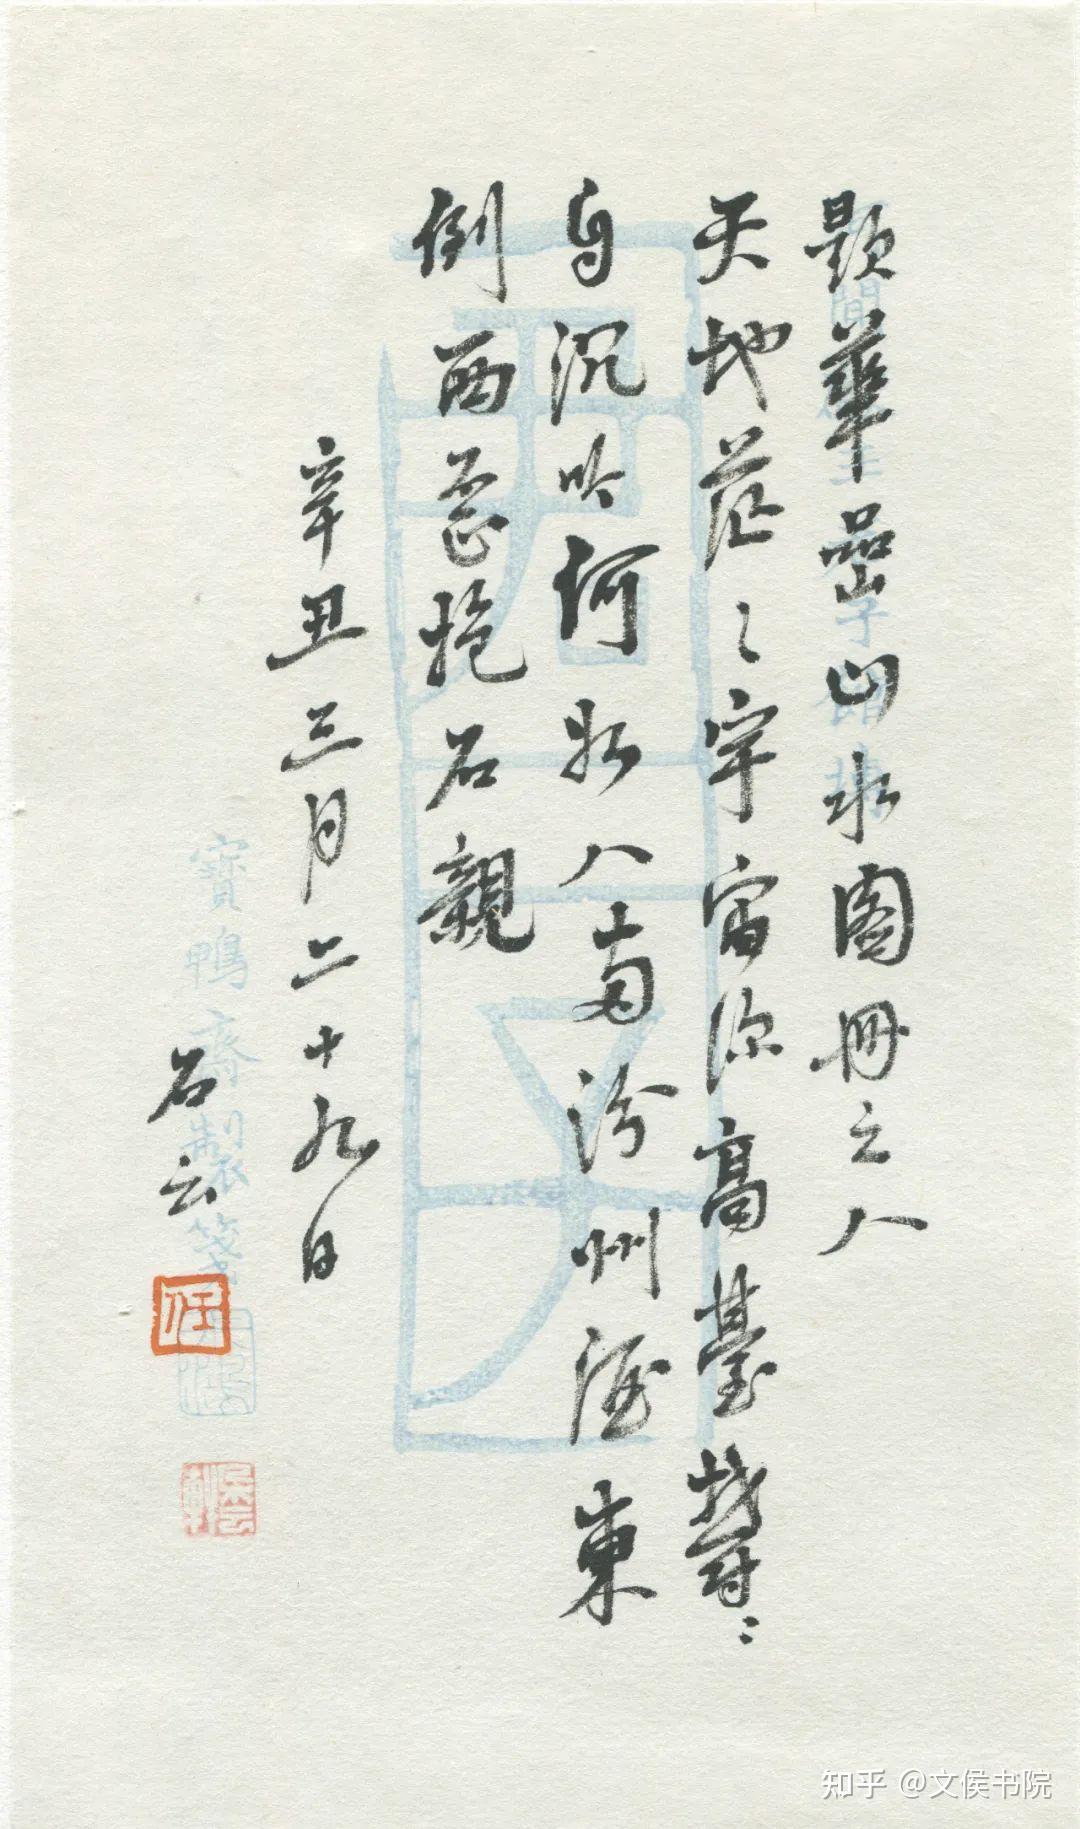 題華嵒山水圖冊之八
天地茫〻宇宙深高臺
自沉吟何八兩汾州酒東
倒西歪抱石親
辛丑三月二十九日
石云
寶鴨齋製箋
知乎 @文侯书院